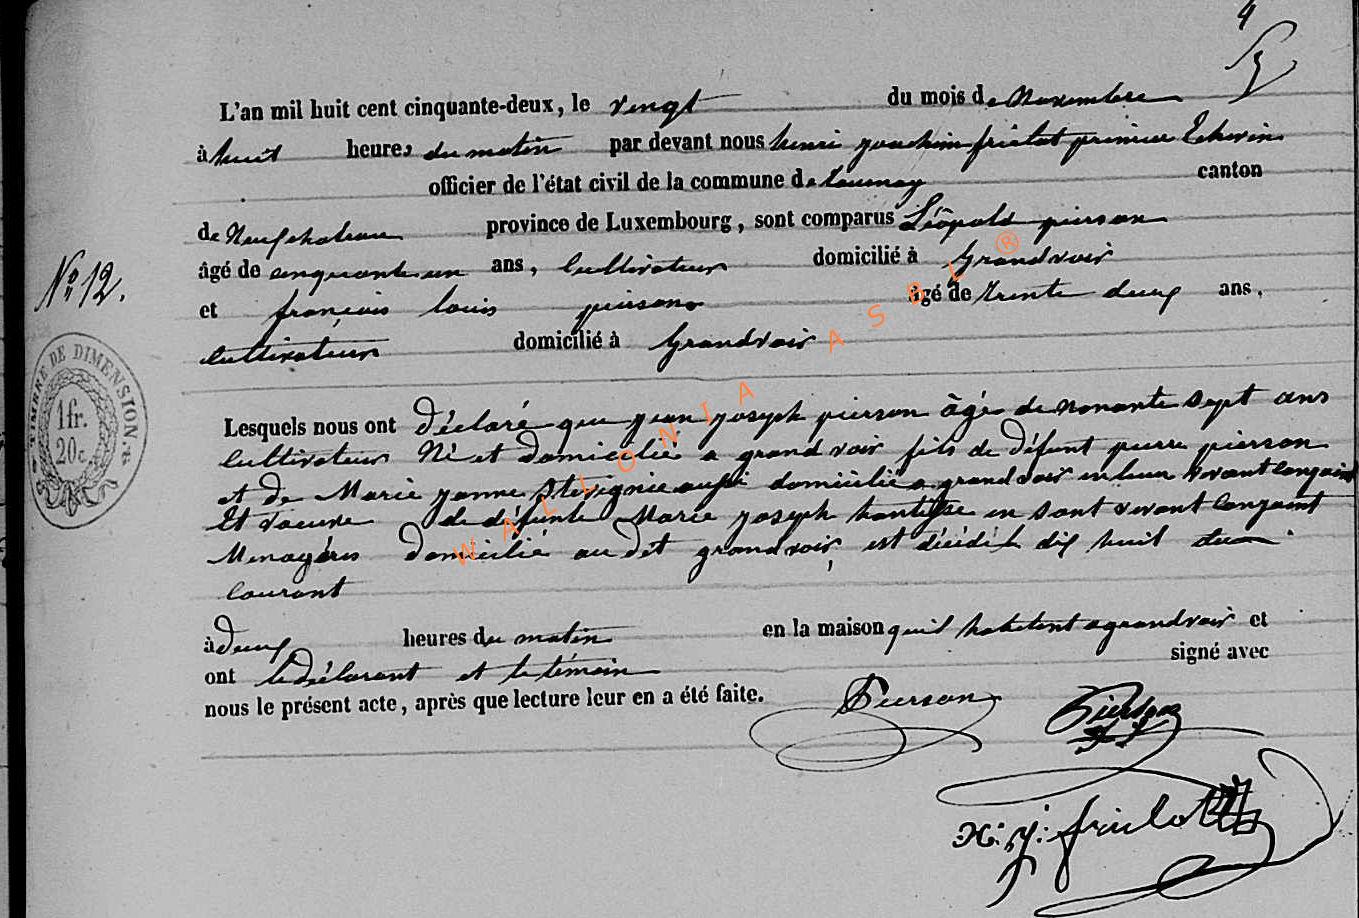 4
L'an mil huit cent cinquante-deux, le vingt du mois de Novembre
à huit heures du matin par devant nous henri joachim frialot premier Echevin
officier de l'état civil de la commune de tournay canton
de Neufchateau province de Luxembourg, sont comparus Léopold pierson
âgé de cinquante un ans, Cultivateur domicilié à Grandvoir
No 12.
et françois louis pierson âgé de trente deux ans,
Cultivateur domicilié à Grandvoir
TIMBRE DE DIMENSION.
1 fr.
20 c.
Lesquels nous ont déclaré que jean joseph pierson âgé de nonante sept ans
Cultivateur Né et domicilié a grandvoir fils de défunt pierre pierson
et de Marie jeanne aussi domicilié a grandvoir en leur vivant conjoint
Et voeuve de défunte Marie joseph en sont vivant conjoint
Menagére domicilié au dit grandvoir, est décédé dix huit du
courant
à deux heures du matin en la maison qu'il habitent a grandvoir et
ont le déclarant et le témoin signé avec
nous le présent acte, après que lecture leur en a été faite. Pierson Pierson
H: J: frialot
WALLONIA ASBL ®